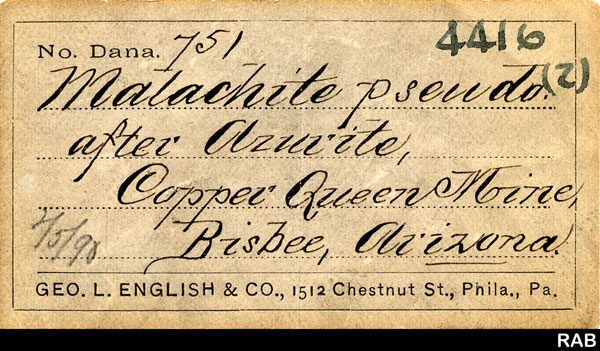 No. Dana. 751
4416
(2)
Malachite pseudo.
after Azurite,
Copper Queen Mine,
Bisbee, Arizona.
GEO. L. ENGLISH & CO., 1512 Chestnut St., Phila., Pa.
RAB